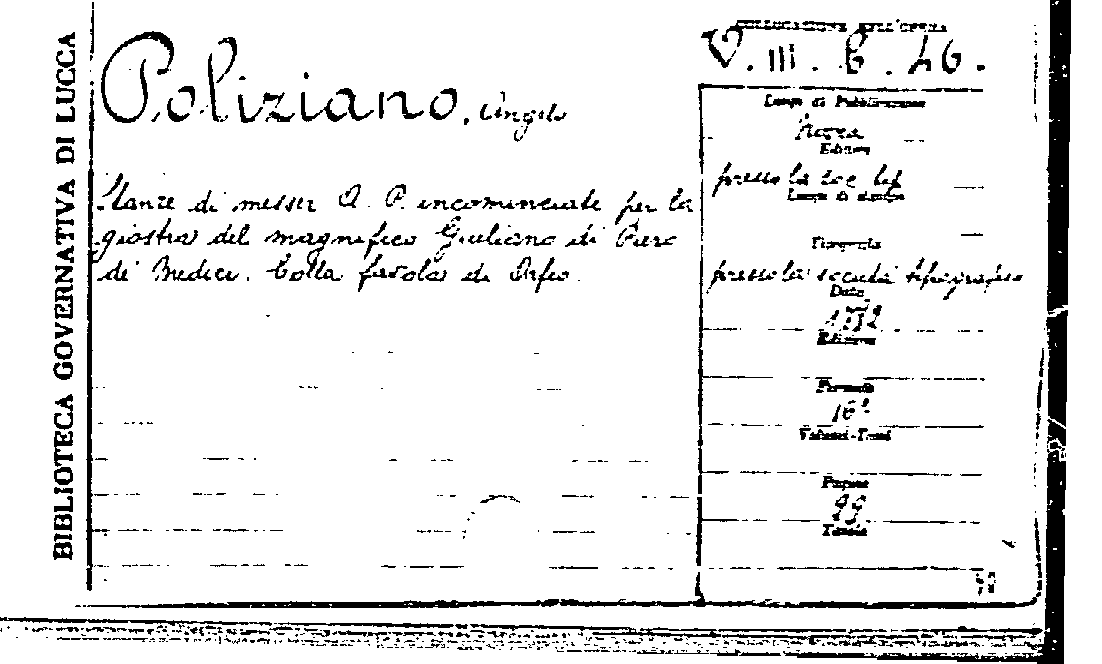 BIBLIOTECA GOVERNATIVA DI LUCCA
Poliziano, Angelo
Stanze di messer A. P. incominciate per la
giostra del magnifico Giuliano di Piero
di Medici. Colla favola di Orfeo.
COLLOCAZIONE DELL'OPERA
V. III. B. 46.
Luogo di Pubblicazione
Editore
presso la soc tip
Luogo di stampa
Tipografia
presso la società tipografica
Data
Edizione
Formato
16º
Volumi-Tomi
Pagine
99
Tavole